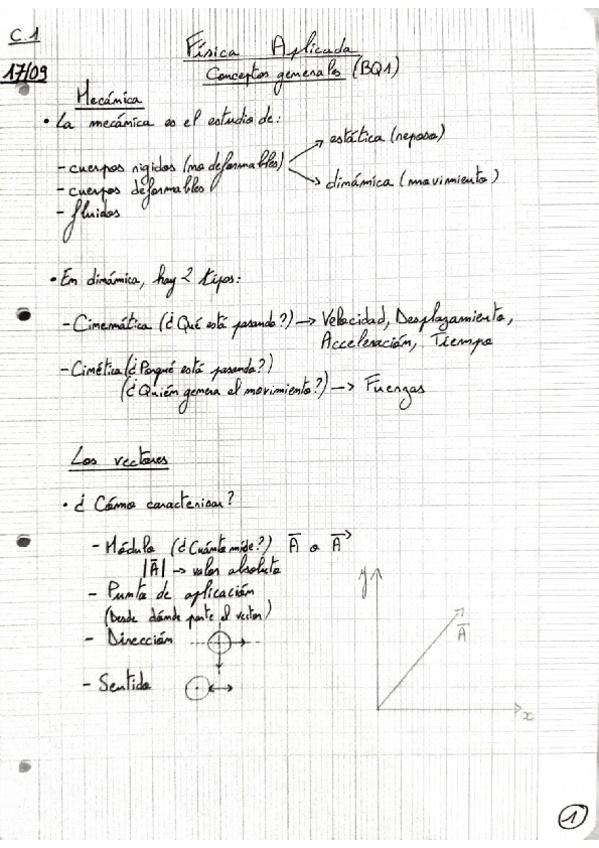 C.1
Física Aplicada
17/09
Conceptos generales (BQ1)
Mecánica
• La mecánica es el estudio de:
→ estática (reposo)
- cuerpos rígidos (no deformables)
→ dinámica (movimiento)
- cuerpos deformables
- fluidos
• En dinámica, hay 2 tipos:
- Cinemática (¿Qué está pasando?) → Velocidad, Desplazamiento,
Acceleración, Tiempo
- Cinética (¿Porqué está pasando?)
(¿Quién genera el movimiento?) → Fuerzas
Los vectores
• ¿Cómo caracterisar?
- Módulo (¿Cuánto mide?) A̅ o A⃗
|A̅| → valor absoluto
- Punto de aplicación
(Desde dónde parte el vector)
- Dirección
- Sentido
y
A̅
x
1